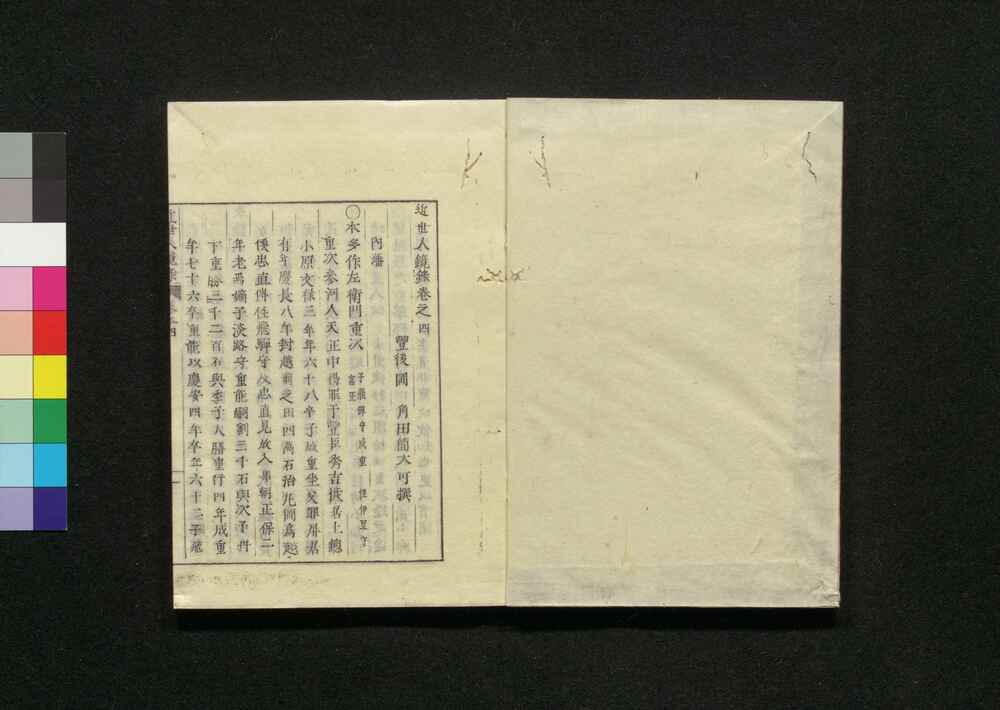 近世人鏡錄卷之四
豐後國 角田簡大可撰
內藩
〇本多作左衛門重次 子飛驒守成重 侄伊豆守富正
重次參河人天正中得罪于豐臣秀吉謫居上總
小原文祿三年年六十八卒子成重坐父罪屏居
有年慶長八年封越前之田四萬石治丸岡爲越
侯忠直傅任飛驒守及忠直見放入奉朝正保二
年老焉嫡子淡路守重能嗣割三千石與次子丹
下重勝三千二百石與季子大膳重行四年成重
年七十六卒重能以慶安四年卒年六十二子飛